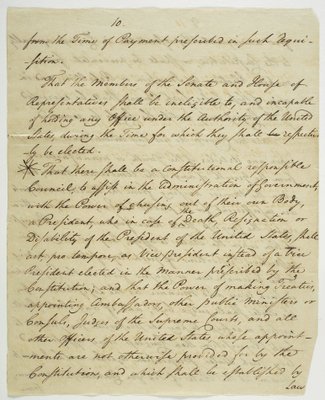 10.
from the Time of Payment prescribed in such Requi-
sition.
That the Members of the Senate and House of
Representatives shall be ineligible to, and incapable
of holding any Office under the Authority of the United
States, during the Time for which they shall respective-
ly be elected.
That there shall be a Constitutional responsible
Council, to assist in the Administration of Government,
with the Power of chusing out of their own Body,
a President, who in case of the Death, Resignation or
Disability of the President of the United States, shall
act pro tempore, as Vice President instead of a Vice
President elected in the Manner prescribed by the
Constitution; and that the Power of making Treaties,
appointing Ambassadors, other public Ministers or
Consuls, Judges of the Supreme Courts, and all
other Officers of the United States, whose appoint-
ments are not otherwise provided for by the
Constitution, and which shall be established by
Law